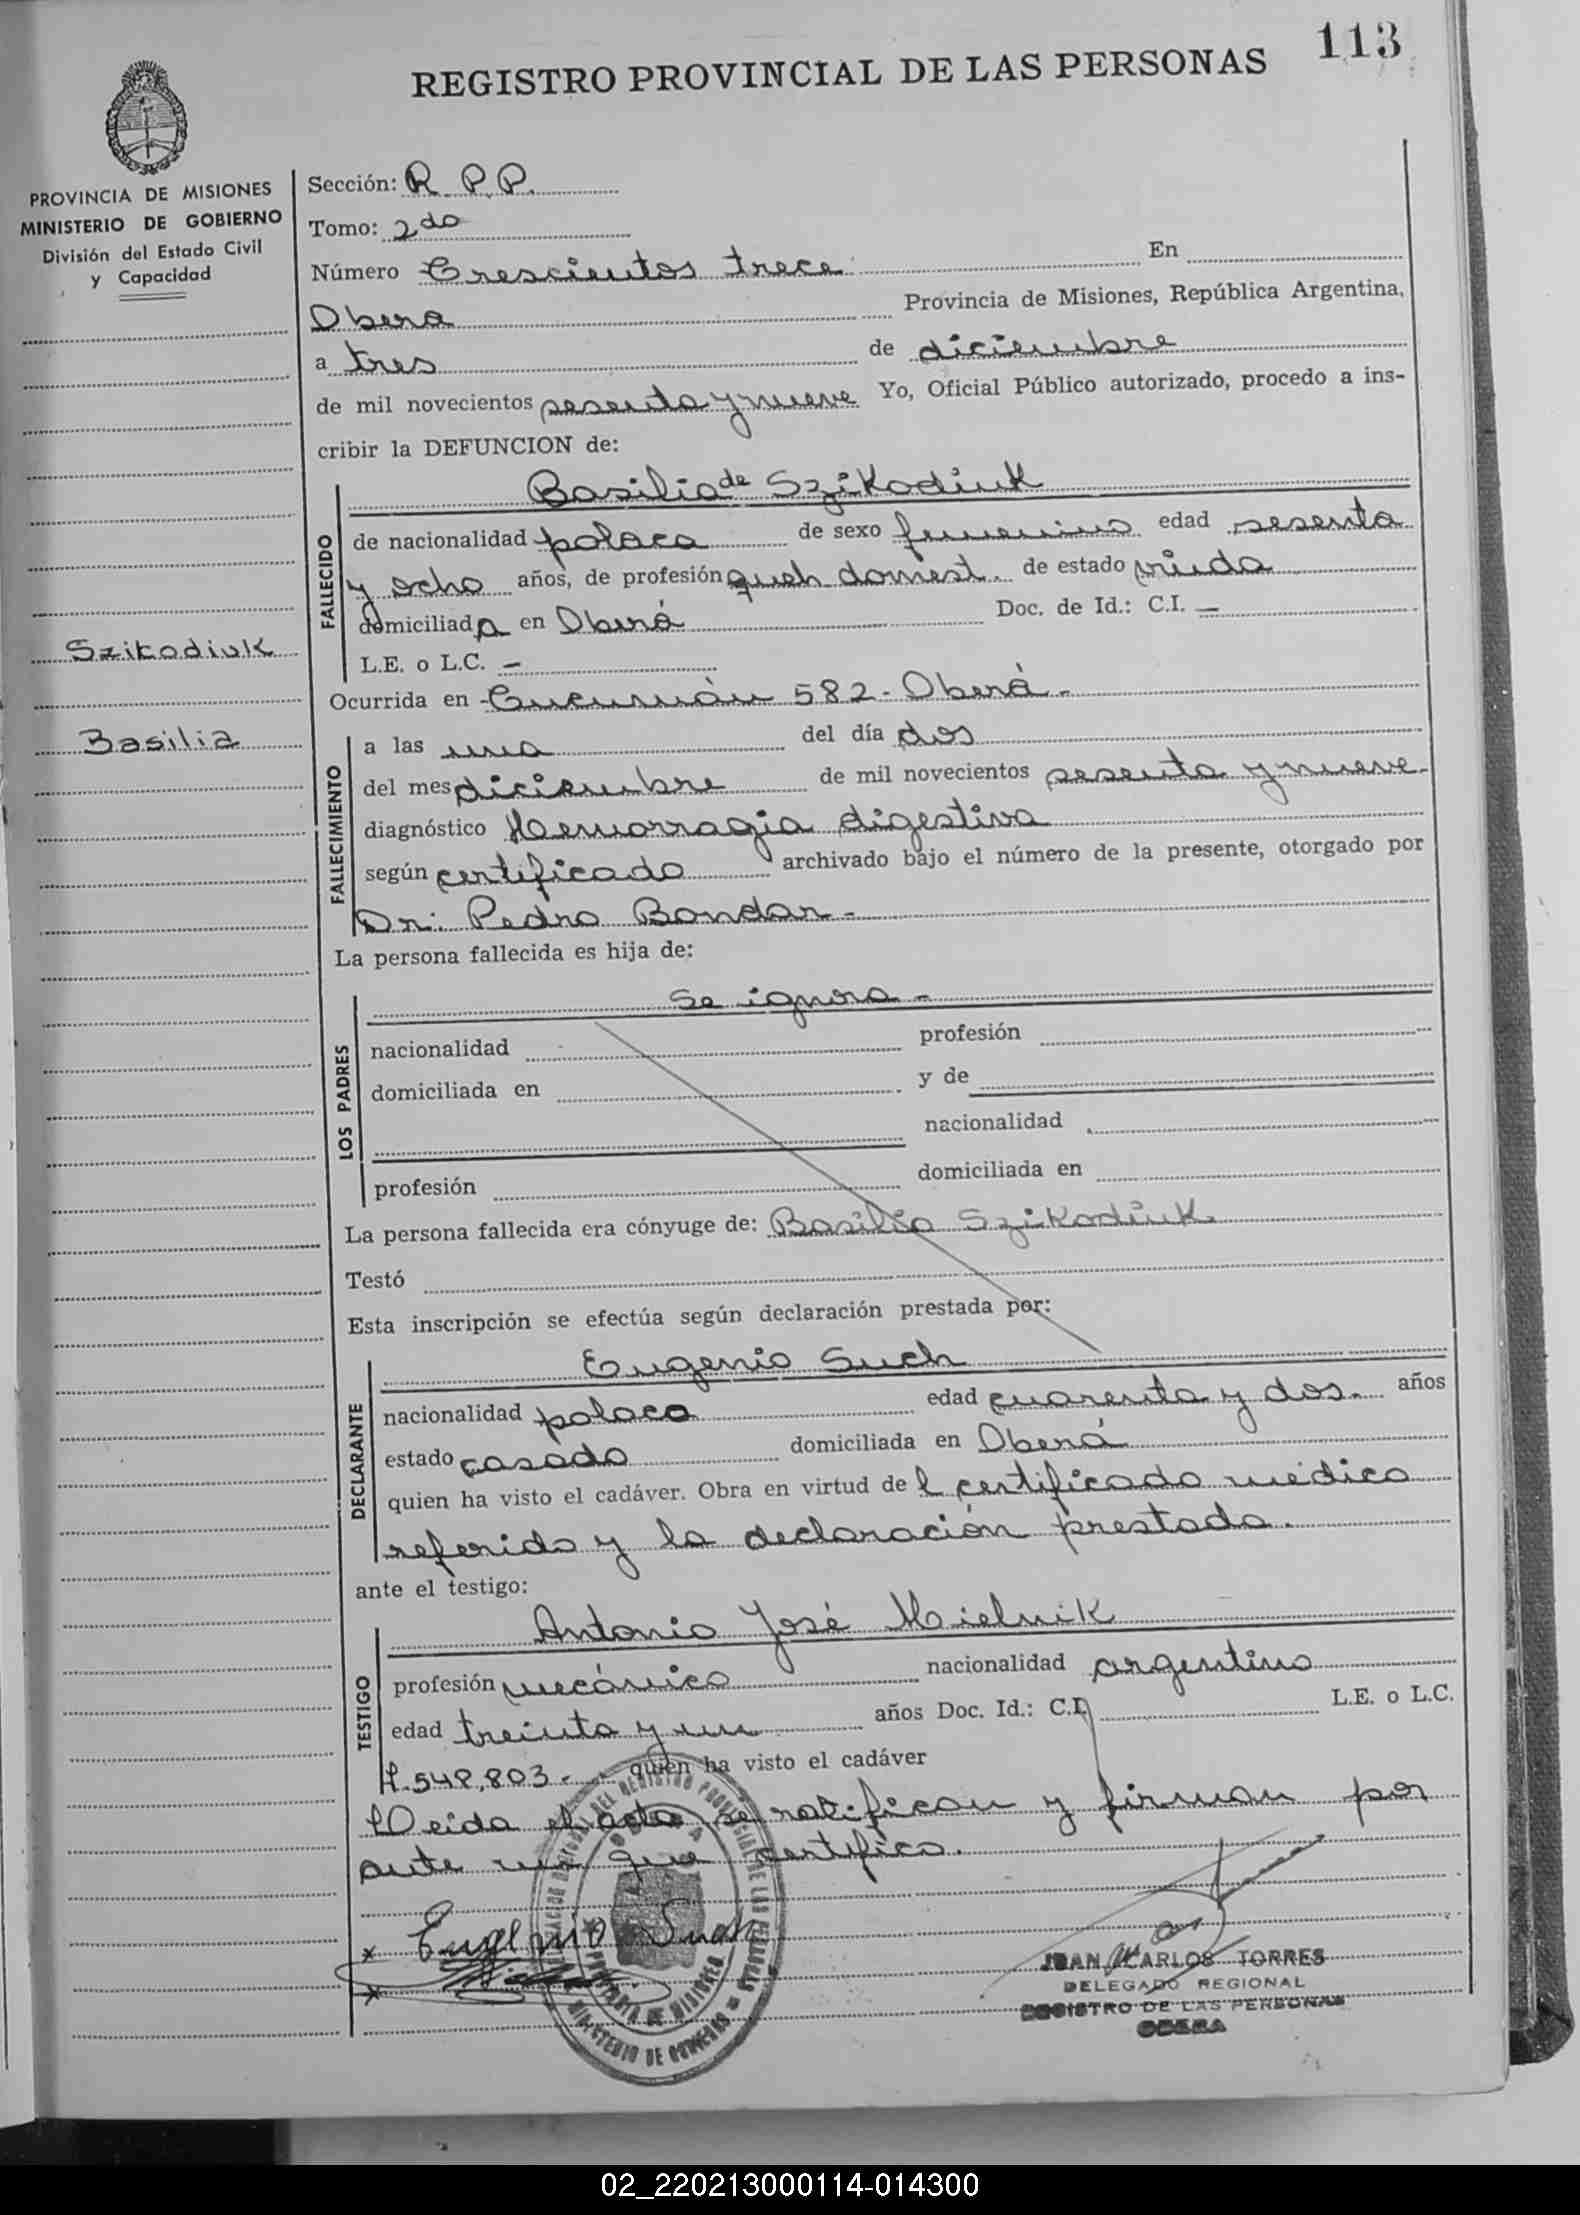 113
REGISTRO PROVINCIAL DE LAS PERSONAS
PROVINCIA DE MISIONES
MINISTERIO DE GOBIERNO
División del Estado Civil
y Capacidad
Szikodiuk
Basilia
Sección: R.P.P.
Tomo: 2do
Número Trescientos trece En
Oberá Provincia de Misiones, República Argentina,
a tres de diciembre
de mil novecientos sesenta y nueve Yo, Oficial Público autorizado, procedo a ins-
cribir la DEFUNCION de:
FALLECIDO
Basilia de Szikodiuk
de nacionalidad polaca de sexo femenino edad sesenta
y ocho años, de profesión queh domest. de estado viuda
domiciliada en Oberá Doc. de Id.: C.I. —
L.E. o L.C. —
Ocurrida en Tucumán 582 - Oberá -
FALLECIMIENTO
a las una del día dos
del mes diciembre de mil novecientos sesenta y nueve
diagnóstico Hemorragia digestiva
según certificado archivado bajo el número de la presente, otorgado por
Dr: Pedro Bondar -
La persona fallecida es hija de:
LOS PADRES
Se ignora -
nacionalidad profesión
domiciliada en y de
nacionalidad
profesión domiciliada en
La persona fallecida era cónyuge de: Basilio Szikodiuk
Testó
Esta inscripción se efectúa según declaración prestada por:
DECLARANTE
Eugenio Such
nacionalidad polaco edad cuarenta y dos. años
estado casado domiciliada en Oberá
quien ha visto el cadáver. Obra en virtud de l certificado médico
referido y la declaración prestada.
ante el testigo:
TESTIGO
Antonio José Mielnik
profesión mecánico nacionalidad argentino
edad treinta y un años Doc. Id.: C.I. L.E. o L.C.
7.548.803 - quien ha visto el cadáver
Leída el acta se ratifican y firman por
ante mi que certifico.
x Eugenio Such
x
JUAN CARLOS TORRES
DELEGADO REGIONAL
REGISTRO DE LAS PERSONAS
OBERA
PROVINCIA DE MISIONES
MINISTERIO DE GOBIERNO
02_220213000114-014300